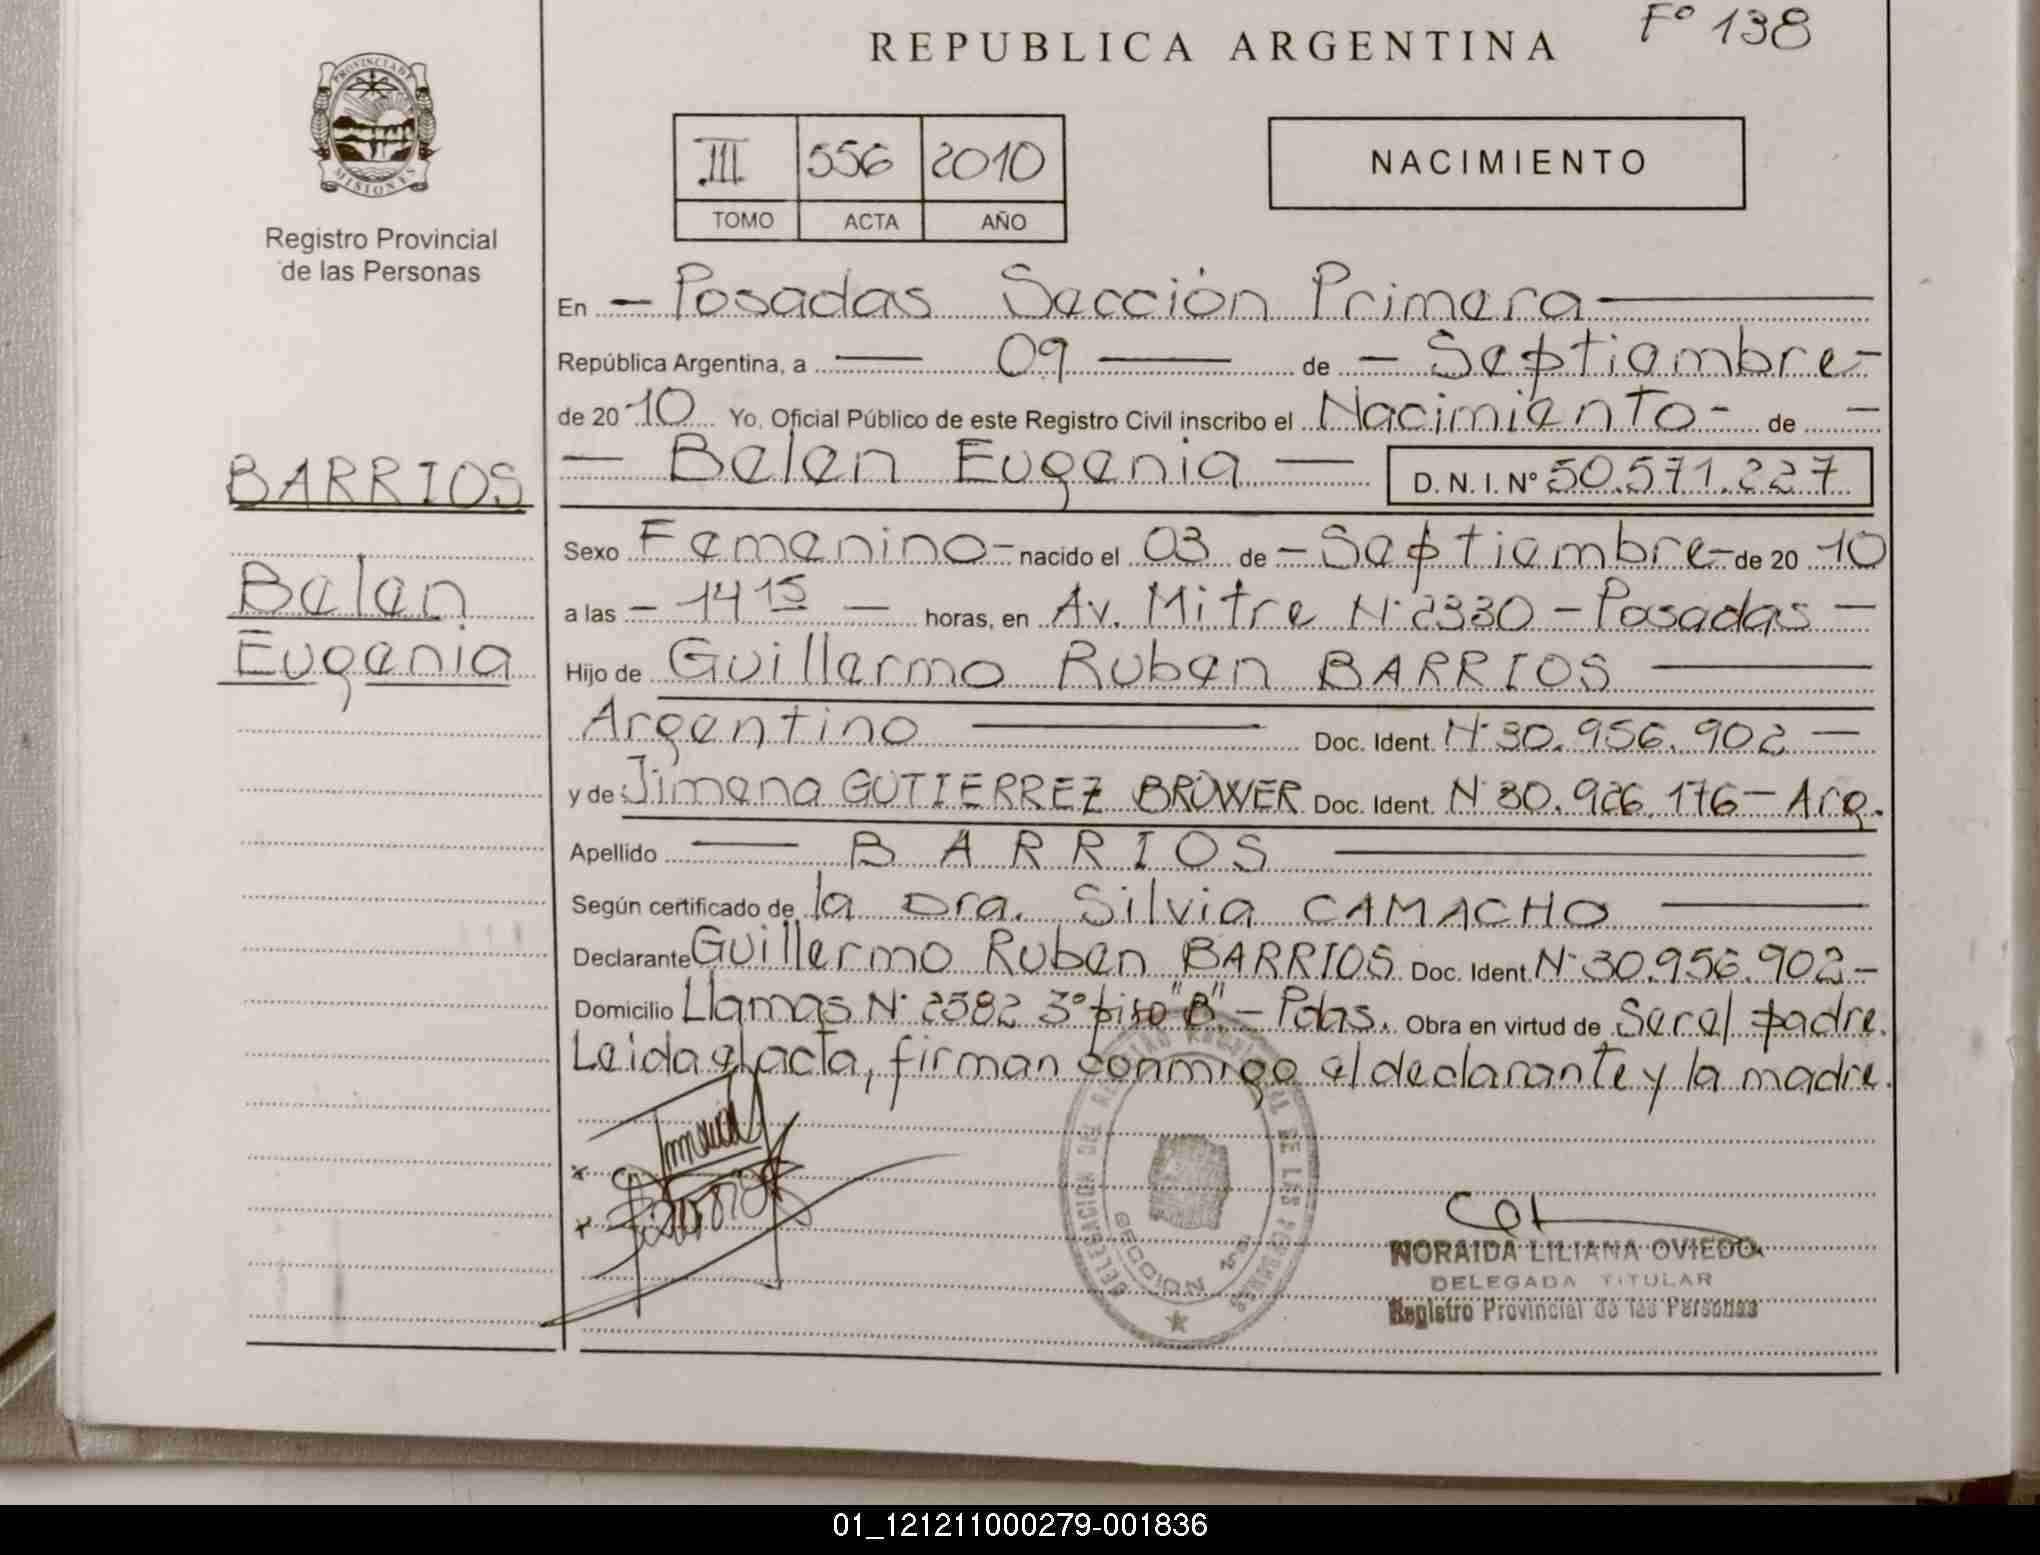 F° 138
REPUBLICA ARGENTINA
PROVINCIA DE
MISIONES
Registro Provincial
de las Personas
III 556 2010
TOMO ACTA AÑO
NACIMIENTO
En – Posadas Sección Primera
República Argentina, a — 09 — de – Septiembre –
de 20 10 Yo, Oficial Público de este Registro Civil inscribo el Nacimiento – de –
— Belen Eugenia — D. N. I. N° 50.571.227
BARRIOS
Belen
Eugenia
Sexo Femenino – nacido el 03 de – Septiembre – de 20 10
a las – 14 15 – horas, en Av. Mitre N° 2330 – Posadas –
Hijo de Guillermo Ruben BARRIOS
Argentino — Doc. Ident. N° 30.956.902 –
y de Jimena GUTIERREZ BRÜWER Doc. Ident. N° 30.926.176 – Arg.
Apellido — BARRIOS —
Según certificado de la Dra. Silvia CAMACHO —
Declarante Guillermo Ruben BARRIOS Doc. Ident. N° 30.956.902 –
Domicilio Llamas N° 2582 3° piso "B" – Pdas. Obra en virtud de Ser el padre.
Leida el acta, firman conmigo el declarante y la madre.
DELEGACION DEL REGISTRO PROVINCIAL DE LAS PERSONAS
SECCION
NORAIDA LILIANA OVIEDO
DELEGADA TITULAR
Registro Provincial de las Personas
01_121211000279-001836